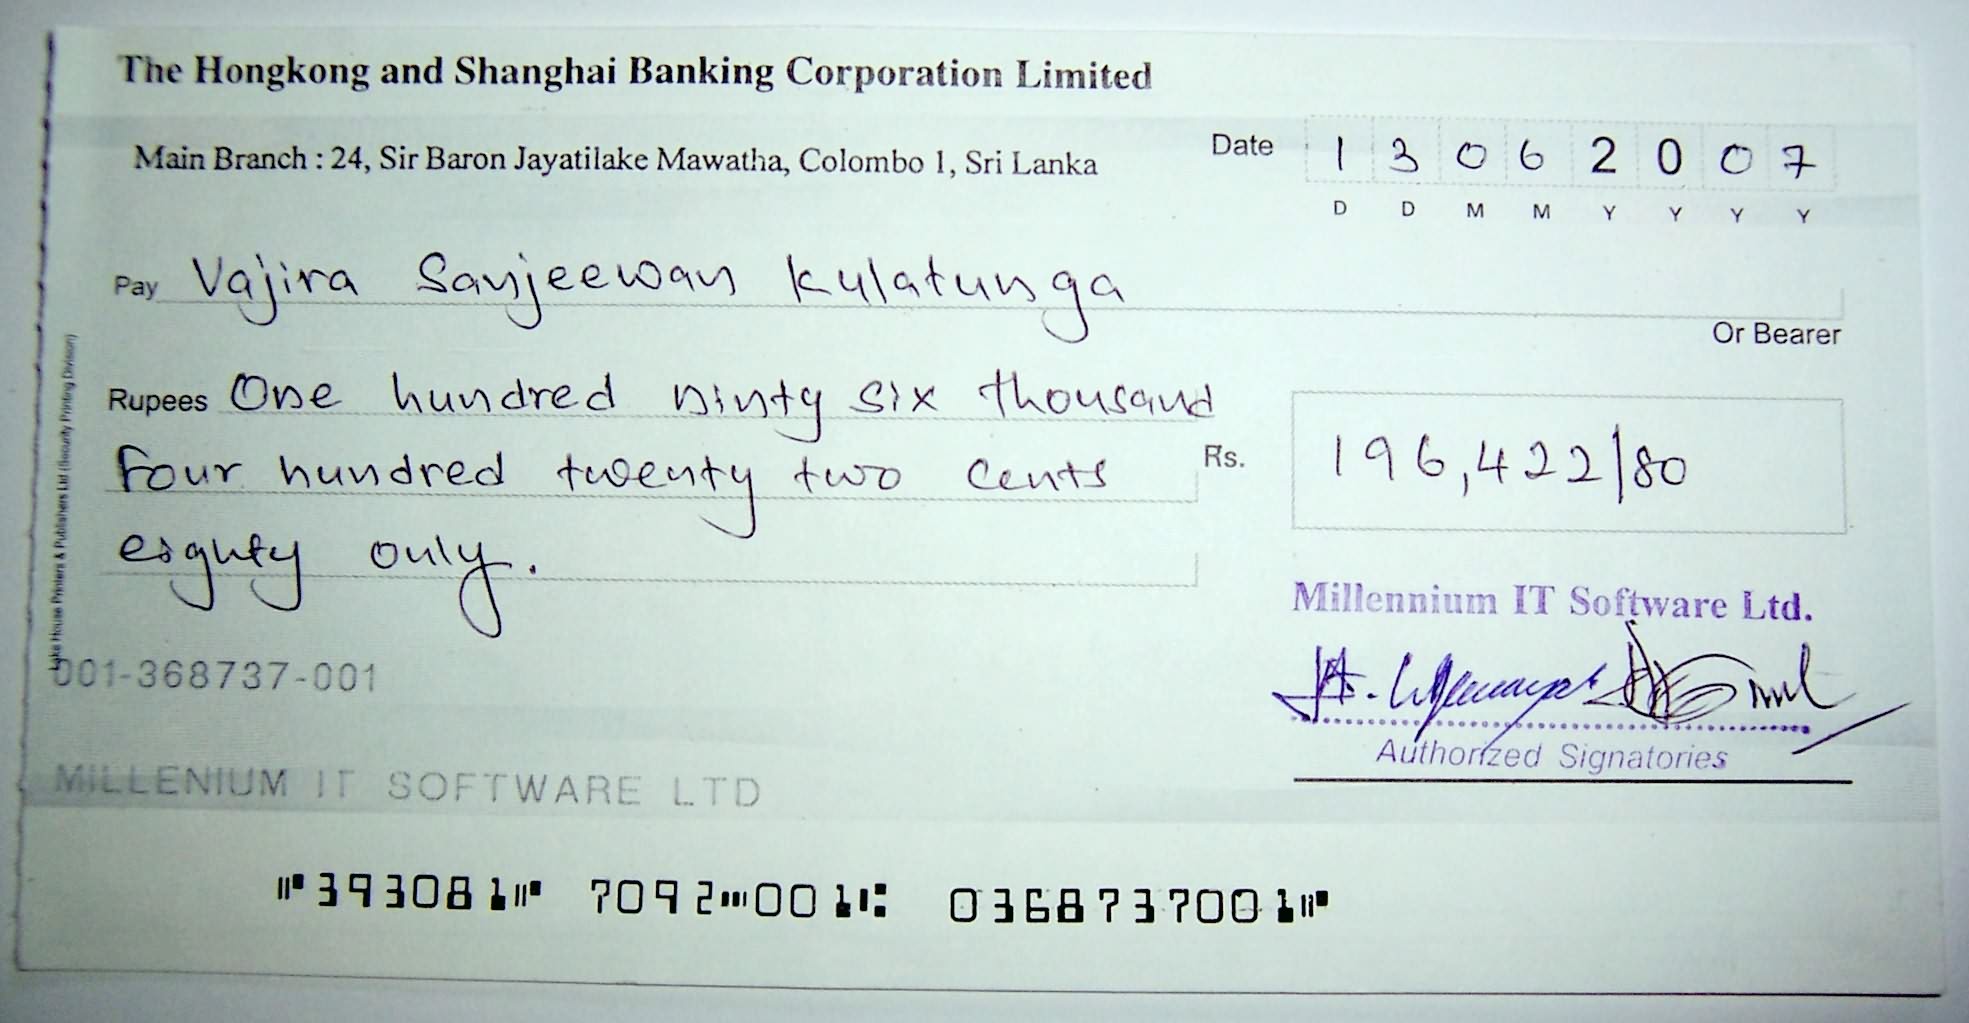 The Hongkong and Shanghai Banking Corporation Limited
Main Branch : 24, Sir Baron Jayatilake Mawatha, Colombo 1, Sri Lanka
Date 1 3 0 6 2 0 0 7
D D M M Y Y Y Y
Pay Vajira Sanjeewan Kulatunga
Or Bearer
Rupees One hundred ninty six thousand
four hundred twenty two cents
eighty only.
Rs. 196,422/80
Lake House Printers & Publishers Ltd (Security Printing Division)
Millennium IT Software Ltd.
Authorized Signatories
001-368737-001
MILLENIUM IT SOFTWARE LTD
⑈393081⑈ 7092⑉001⑆ 0368737001⑈